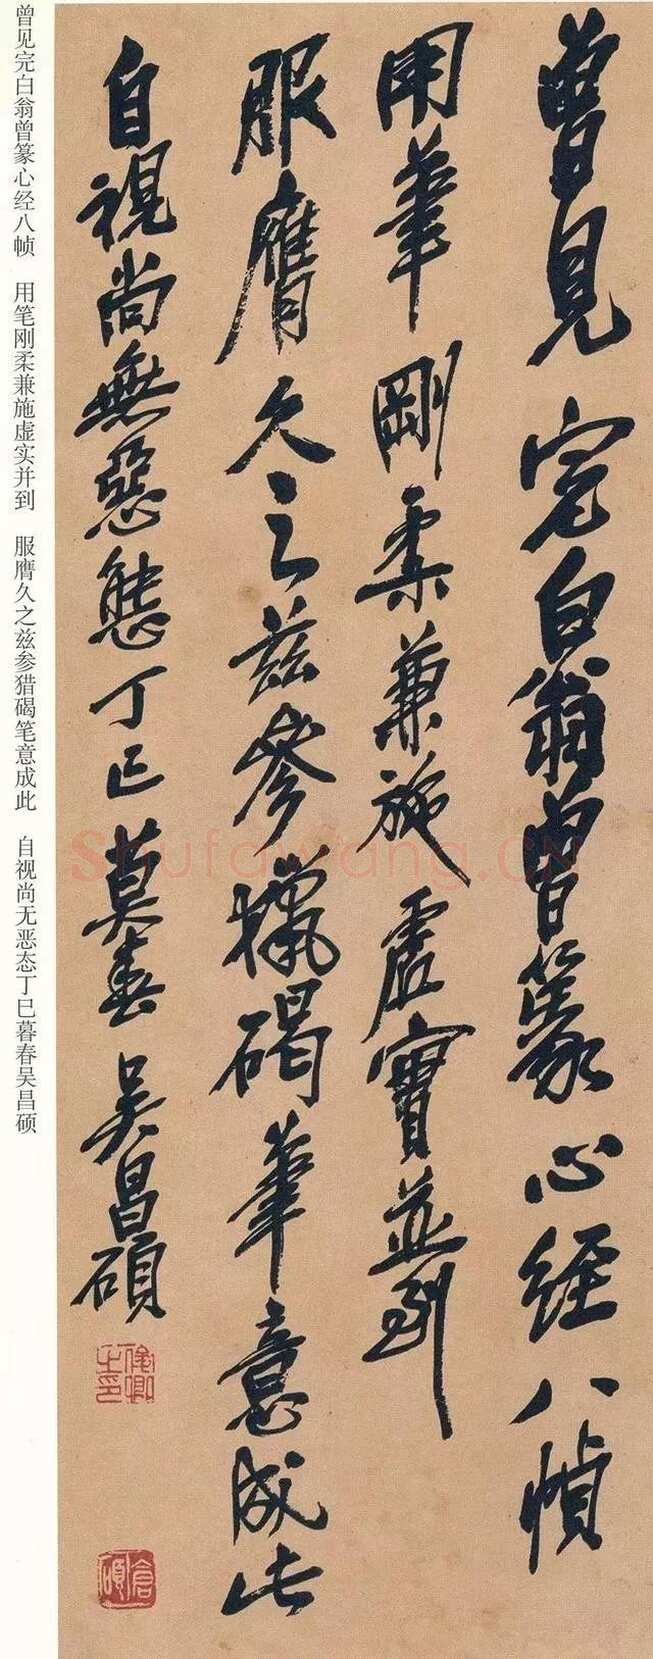 曾見完白翁曾篆心經八幀
用筆剛柔兼施虛實並到
服膺久之茲參獵碣筆意成此
自視尚無惡態丁巳莫春吳昌碩
俊卿之印
倉碩
曾见完白翁曾篆心经八帧 用笔刚柔兼施虚实并到 服膺久之兹参猎碣笔意成此 自视尚无恶态丁巳暮春吴昌硕
Shufawang.CN